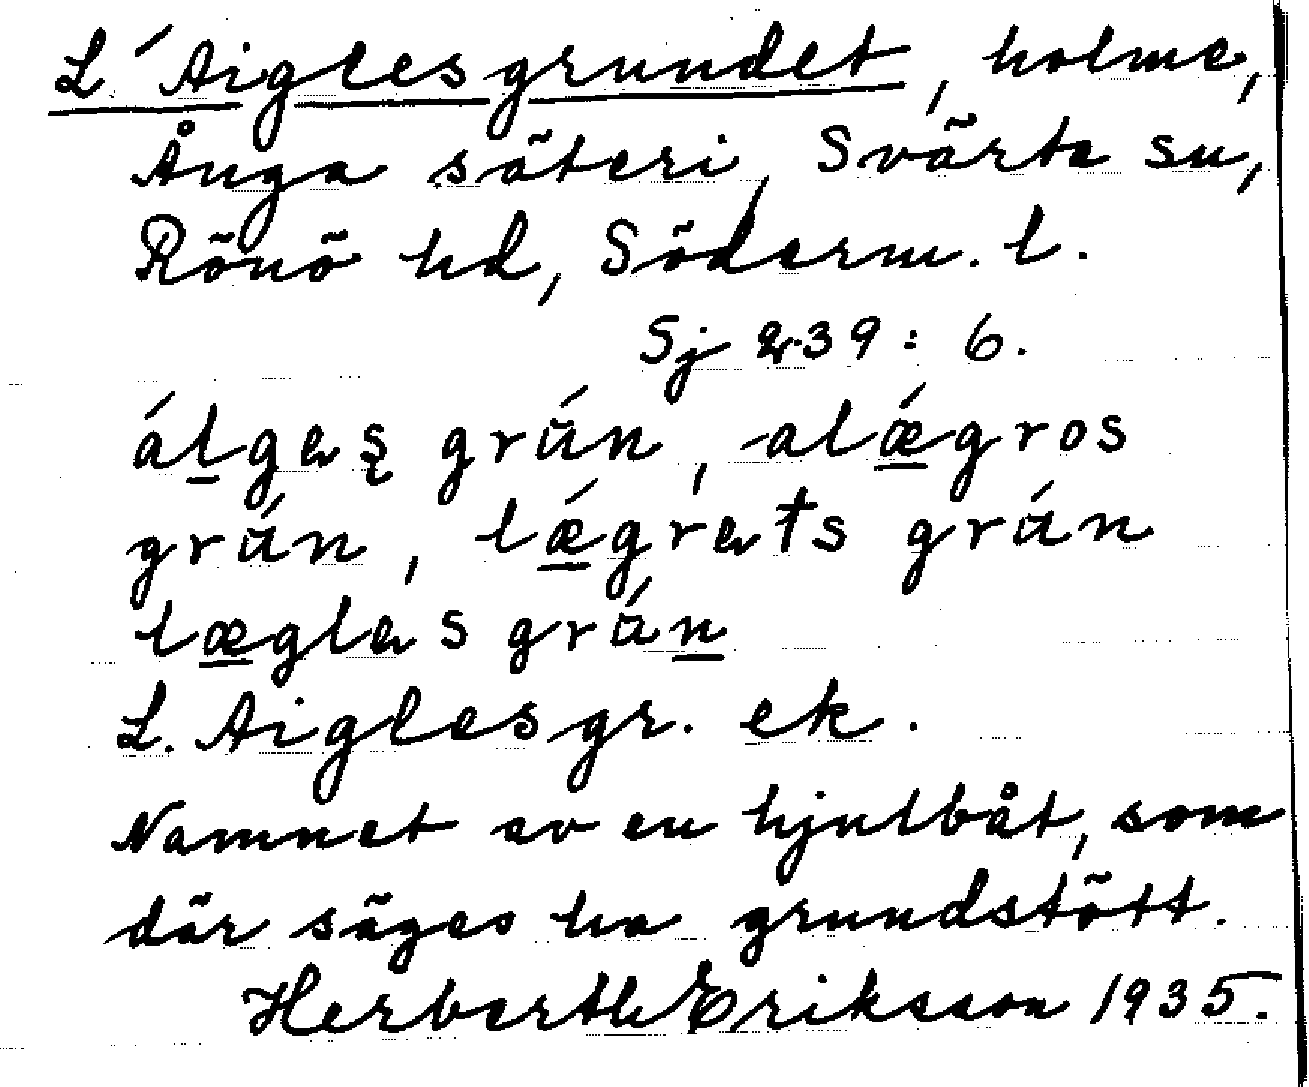 L'Aiglesgrundet, holme,
Ånga säteri, Svärta sn,
Rönö hd, Söderm. l.
Sj 239 : 6.
álgəs grún, alǽgros
grún, lǽgrəts grún
lægləs grún
L. Aiglesgr. ek.
Namnet av en hjulbåt, som
där säges ha grundstött.
Herberth Eriksson 1935.